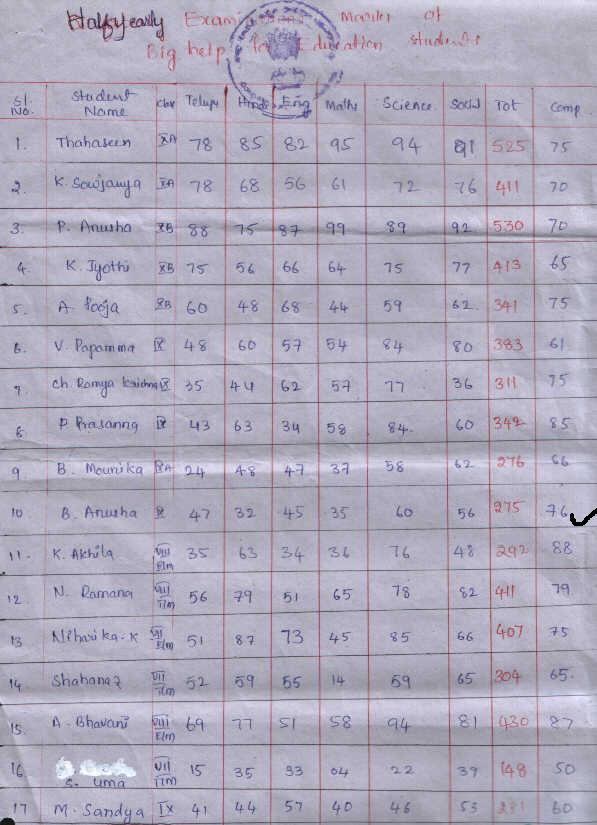 Halfyearly Examinations Marks of
Big help for Education students
Sl. No. Student Name Class Telugu Hindi Eng Maths Science Social Tot Comp
1. Thahaseen XA 78 85 82 95 94 91 525 75
2. K. Sowjanya XA 78 68 56 61 72 76 411 70
3. P. Anusha XB 88 75 87 99 89 92 530 70
4. K. Jyothi XB 75 56 66 64 75 77 413 65
5. A. Pooja XB 60 48 68 44 59 62 341 75
6. V. Papamma IX 48 60 57 54 84 80 383 61
7. Ch. Ramya Krishna IX 35 44 62 57 77 36 311 75
8 P. Prasanna IX 43 63 34 58 84 60 342 85
9 B. Mounika IXA 24 48 47 37 58 62 276 66
10 B. Anusha IX 47 32 45 35 60 56 275 76
11. K. Akhila VIII E/m 35 63 34 36 76 48 292 88
12. N. Ramana VIII T/m 56 79 51 65 78 82 411 79
13 Niharika. K VII E/m 51 87 73 45 85 66 407 75
14 Shahanaz VII T/m 52 59 55 14 59 65 304 65.
15. A. Bhavani VIII E/m 69 77 51 58 94 81 430 87
16 S. Uma VII T/m 15 35 33 04 22 39 148 50
17 M. Sandya IX 41 44 57 40 46 53 281 60